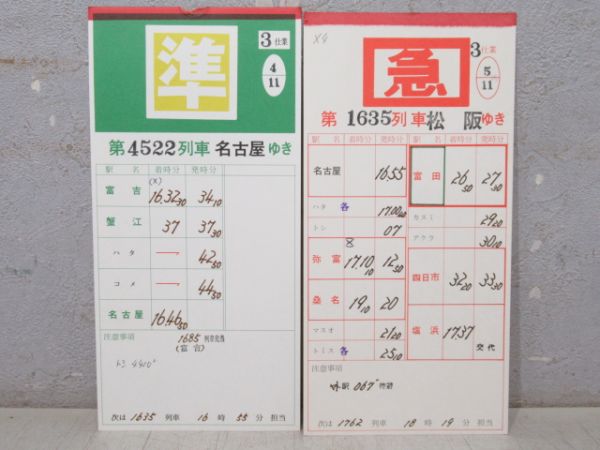 3仕業
準
4
11
第4522列車 名古屋ゆき
駅 名 着時分 発時分
(X)
富 吉 16.32 30 34 10
蟹 江 37 37 30
ハ タ 42 50
コ メ 44 50
名古屋 16.46 50
注意事項
1685 列車交換
(富吉)
次は 1635 列車 16 時 55 分 担当
X4
3仕業
急
5
11
第 1635列 車松 阪ゆき
駅 名 着時分 発時分 駅 名 着時分 発時分
名古屋 16.55
富 田 26 50 27 30
ハ タ 各 17.00
カスミ 29 20
トシ 07
アクラ 30 10
弥 富 17.10 10 12 50
四日市 32 20 33 30
桑 名 19 10 20
塩 浜 17.37 交代
マスオ 21 20
トミス 各 25 10
注意事項
次は 1762 列車 18 時 19 分 担当